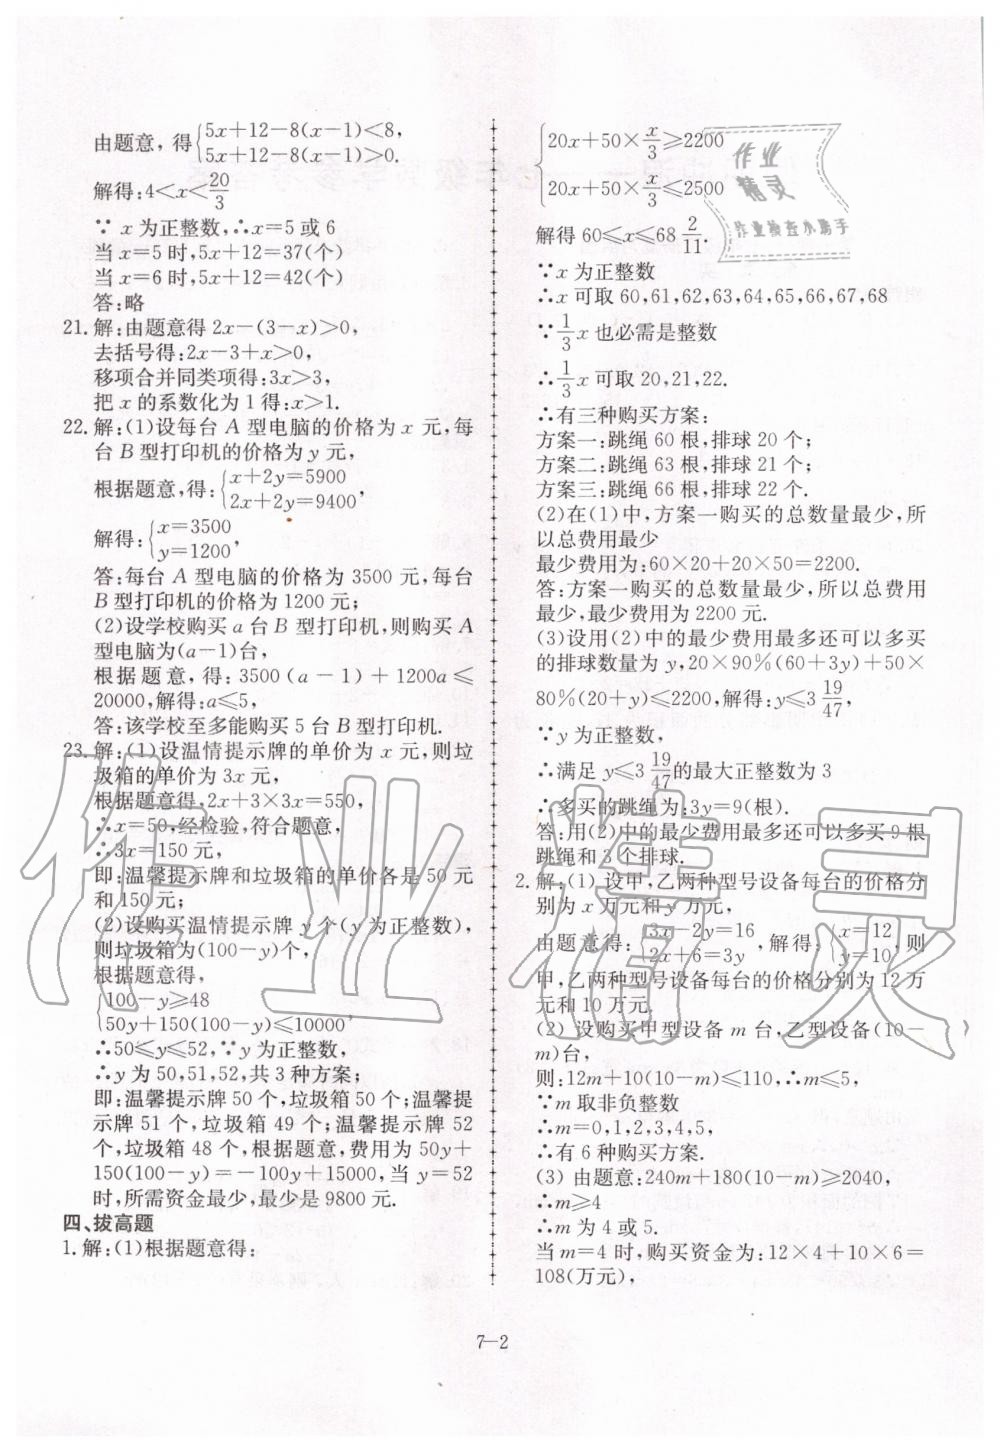 由题意，得{5x+12-8(x-1)<8,
5x+12-8(x-1)>0.
解得:4<x<20/3
∵ x 为正整数,∴x=5 或 6
当 x=5 时,5x+12=37(个)
当 x=6 时,5x+12=42(个)
答:略
21.解:由题意得 2x-(3-x)>0,
去括号得:2x-3+x>0,
移项合并同类项得:3x>3,
把 x 的系数化为 1 得:x>1.
22.解:(1)设每台 A 型电脑的价格为 x 元,每
台 B 型打印机的价格为 y 元,
根据题意,得:{x+2y=5900
2x+2y=9400,
解得:{x=3500
y=1200,
答:每台 A 型电脑的价格为 3500 元,每台
B 型打印机的价格为 1200 元;
(2)设学校购买 a 台 B 型打印机,则购买 A
型电脑为(a-1)台,
根据题意,得:3500(a-1)+1200a≤
20000,解得:a≤5,
答:该学校至多能购买 5 台 B 型打印机.
23.解:(1)设温情提示牌的单价为 x 元,则垃
圾箱的单价为 3x 元,
根据题意得,2x+3×3x=550,
∴x=50,经检验,符合题意,
∴3x=150 元,
即:温馨提示牌和垃圾箱的单价各是 50 元
和 150 元;
(2)设购买温情提示牌 y 个(y 为正整数),
则垃圾箱为(100-y)个,
根据题意得,
{100-y≥48
50y+150(100-y)≤10000,
∴50≤y≤52,∵y 为正整数,
∴y 为 50,51,52,共 3 种方案;
即:温馨提示牌 50 个,垃圾箱 50 个;温馨提
示牌 51 个,垃圾箱 49 个;温馨提示牌 52
个,垃圾箱 48 个,根据题意,费用为 50y+
150(100-y)=-100y+15000,当 y=52
时,所需资金最少,最少是 9800 元.
四、拔高题
1.解:(1)根据题意得:
{20x+50×x/3≥2200
20x+50×x/3≤2500
解得 60≤x≤68 2/11.
∵x 为正整数
∴x 可取 60,61,62,63,64,65,66,67,68
∵1/3 x 也必需是整数
∴1/3 x 可取 20,21,22.
∴有三种购买方案:
方案一:跳绳 60 根,排球 20 个;
方案二:跳绳 63 根,排球 21 个;
方案三:跳绳 66 根,排球 22 个.
(2)在(1)中,方案一购买的总数量最少,所
以总费用最少
最少费用为:60×20+20×50=2200.
答:方案一购买的总数量最少,所以总费用
最少,最少费用为 2200 元.
(3)设用(2)中的最少费用最多还可以多买
的排球数量为 y,20×90%(60+3y)+50×
80%(20+y)≤2200,解得:y≤3 19/47,
∵y 为正整数,
∴满足 y≤3 19/47 的最大正整数为 3
∴多买的跳绳为:3y=9(根).
答:用(2)中的最少费用最多还可以多买 9 根
跳绳和 3 个排球.
2.解:(1) 设甲,乙两种型号设备每台的价格分
别为 x 万元和 y 万元,
由题意得:{3x-2y=16
2x+6=3y,解得:{x=12
y=10,则
甲,乙两种型号设备每台的价格分别为 12 万
元和 10 万元.
(2) 设购买甲型设备 m 台,乙型设备(10-
m)台,
则:12m+10(10-m)≤110,∴m≤5,
∵m 取非负整数
∴m=0,1,2,3,4,5,
∴有 6 种购买方案.
(3) 由题意:240m+180(10-m)≥2040,
∴m≥4
∴m 为 4 或 5.
当 m=4 时,购买资金为:12×4+10×6=
108(万元),
7—2
作业
精灵
作业检查小助手
作业精灵